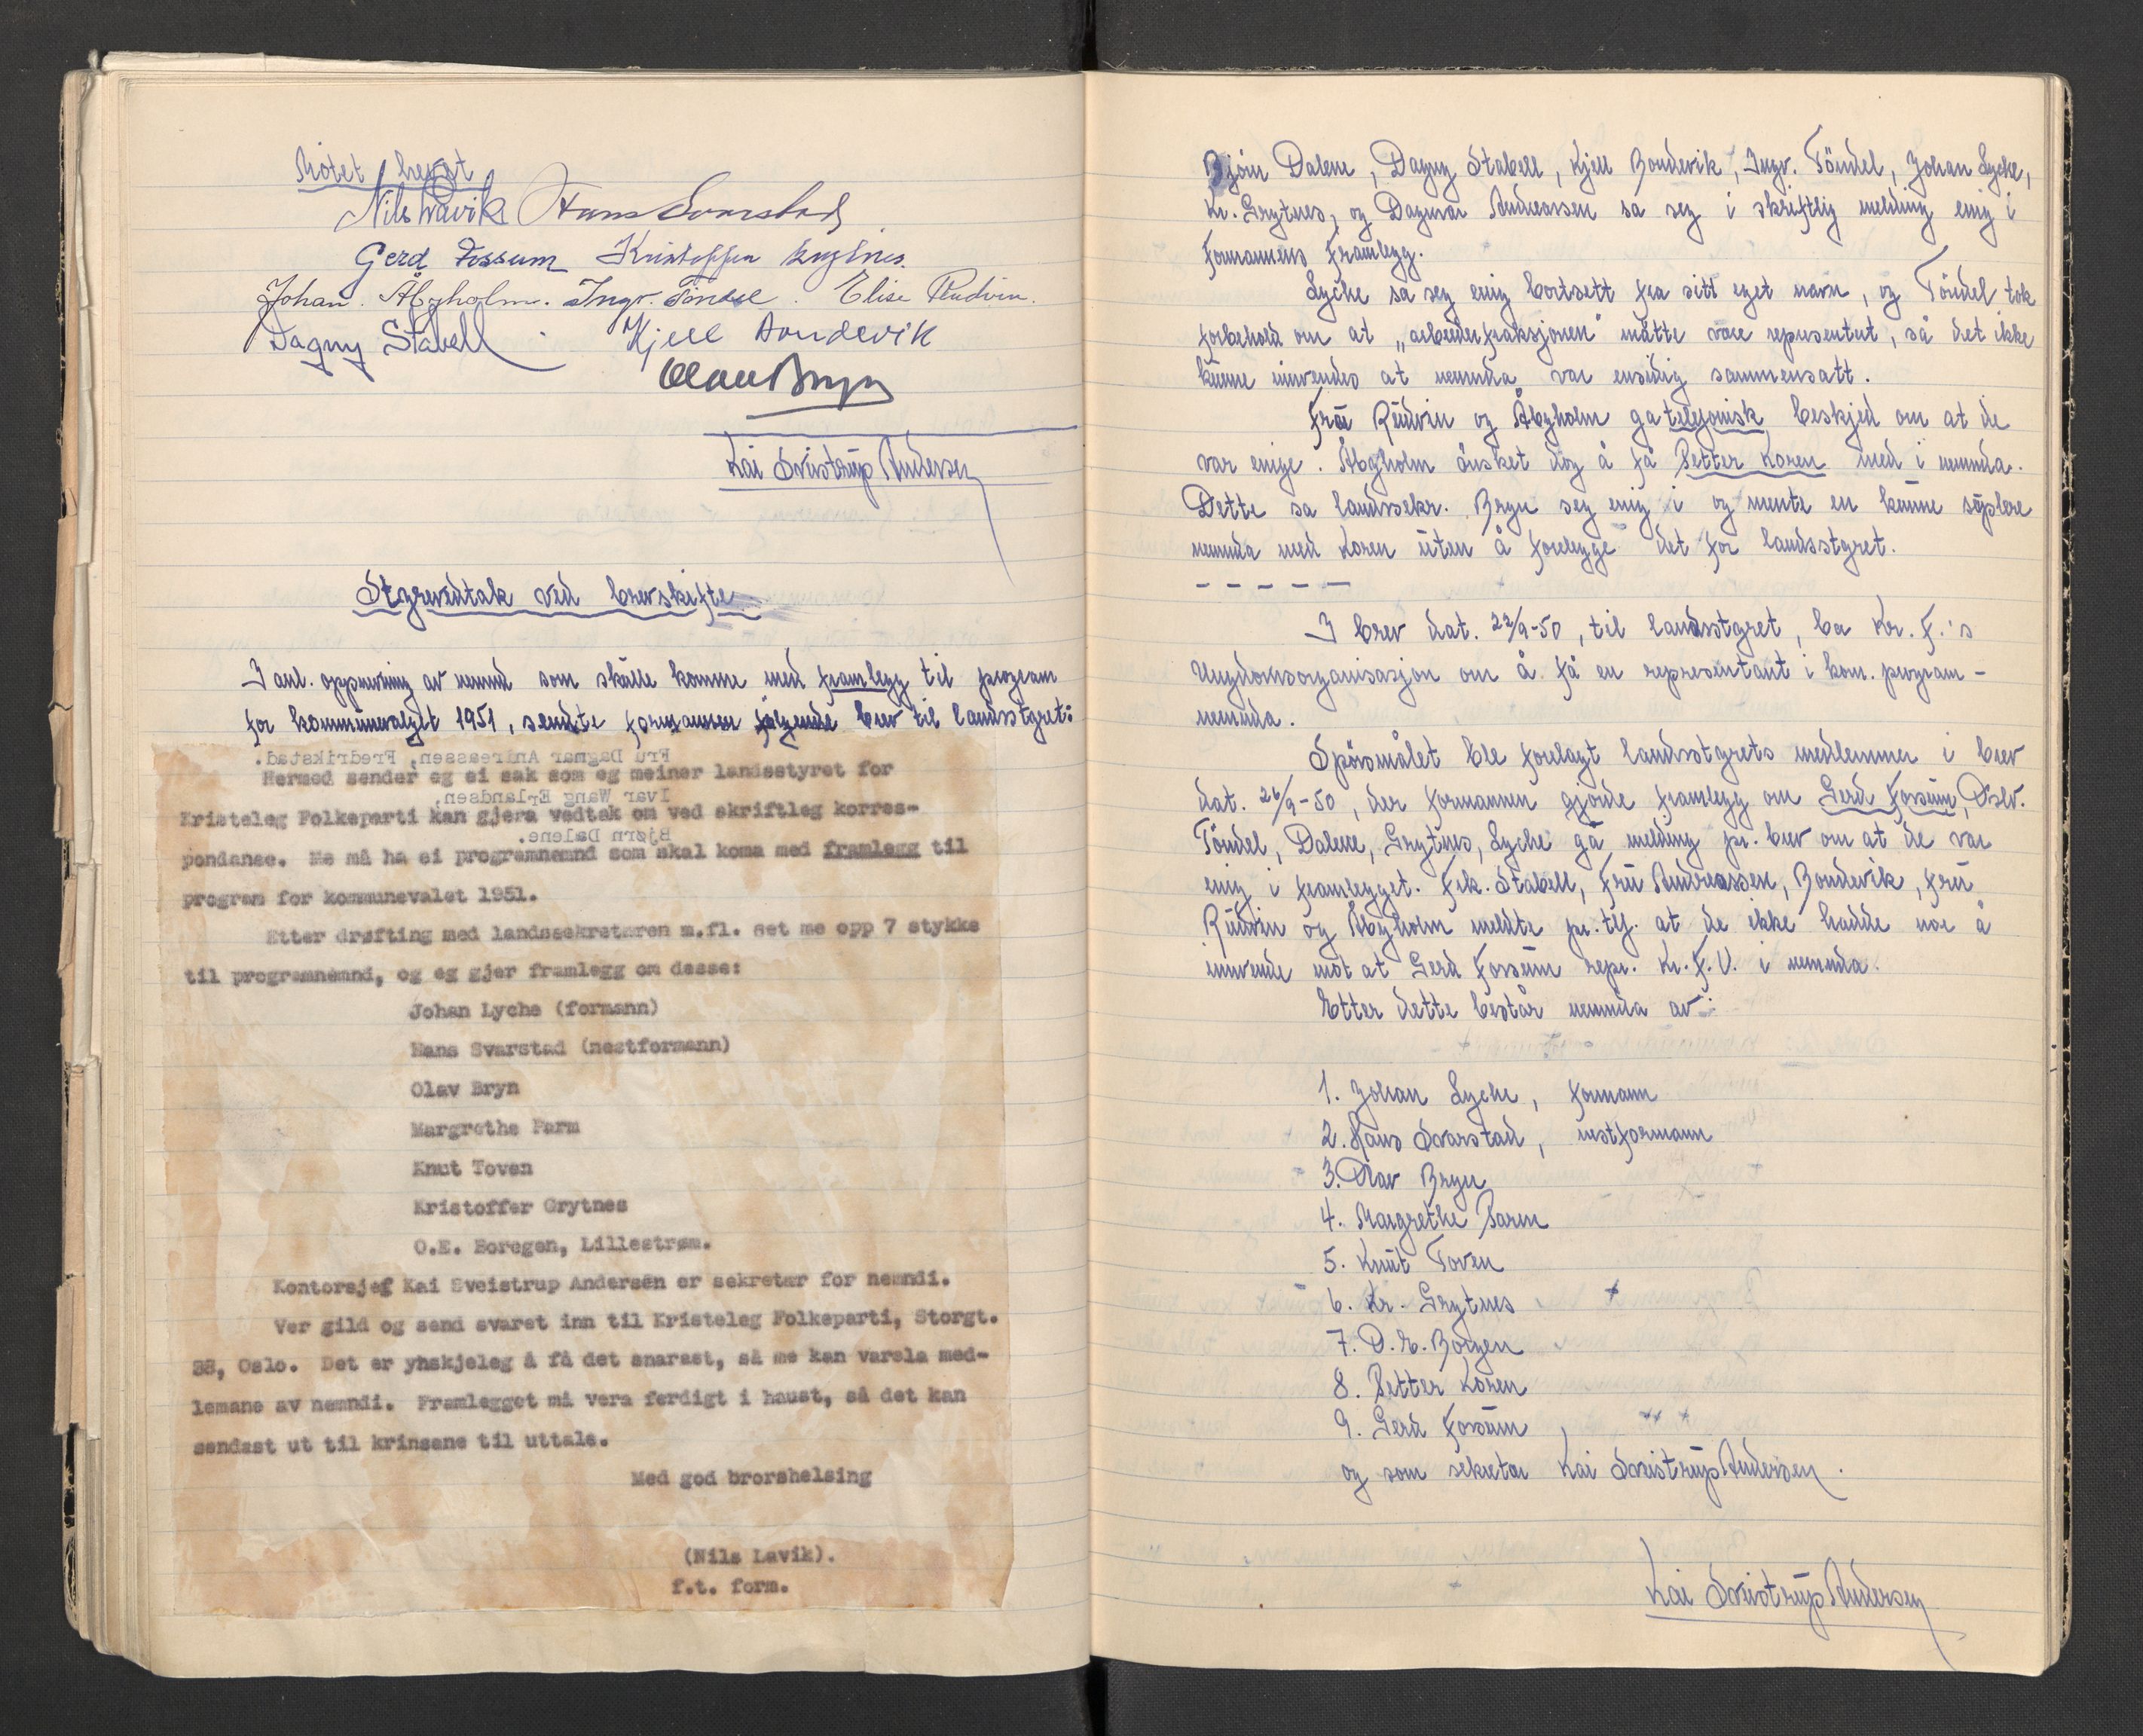 Møtet hevet
Nils Lavik Hans Svarstad
Gerd Fossum Kristoffer Grytnes.
Johan Åbyholm. Ingv. Töndel. Elise Rudvin.
Dagny Stabell Kjell Bondevik
Olav Bryn
Kai Sveistrup Andersen
Styrevedtak ved brevskifte
I anl. oppnevning av nemnd som skulle komme med framlegg til program
for kommunevalget 1951, sendte formannen følgende brev til landsstyret:
Fru Dagmar Andreassen, Fredrikstad.
Hermed sender eg ei sak som eg meiner landsstyret for
Ivar Wang Erlandsen,
Kristeleg Folkeparti kan gjera vedtak om ved skriftleg korres-
Bjørn Dalene.
pondanse. Me må ha ei programnemnd som skal koma med framlegg til
program for kommunevalet 1951.
Etter drøfting med landssekretæren m.fl. set me opp 7 stykke
til programnemnd, og eg gjer framlegg om desse:
Johan Lyche (formann)
Hans Svarstad (nestformann)
Olav Bryn
Margrethe Parm
Knut Toven
Kristoffer Grytnes
O.E. Borgen, Lillestrøm.
Kontorsjef Kai Sveistrup Andersen er sekretær for nemndi.
Ver gild og send svaret inn til Kristeleg Folkeparti, Storgt.
38, Oslo. Det er ynskjeleg å få det snarast, så me kan varsla med-
lemane av nemndi. Framlegget må vera ferdigt i haust, så det kan
sendast ut til krinsane til uttale.
Med god brorshelsing
(Nils Lavik).
f.t. form.
Bjørn Dalene, Dagny Stabell, Kjell Bondevik, Ingv. Töndel, Johan Lyche,
Kr. Grytnes, og Dagmar Andreassen sa seg i skriftlig melding enig i
formannens framlegg.
Lyche sa seg enig bortsett fra sitt eget navn, og Töndel tok
forbehold om at „arbeiderfraksjonen" måtte være representert, så det ikke
kunne innvendes at nemnda var ensidig sammensatt.
Fru Rudvin og Åbyholm ga telefonisk beskjed om at de
var enige. Åbyholm ønsket dog å få Petter Koren med i nemnda.
Dette sa landssekr. Bryn seg enig i og mente en kunne supplere
nemnda med Koren uten å forelegge det for landsstyret.
- - - - -
I brev dat. 22/9-50, til landsstyret, ba Kr. F.'s
Ungdomsorganisasjon om å få en representant i kom. program-
nemnda.
Spørsmålet ble forelagt landsstyrets medlemmer i brev
dat. 26/9-50, der formannen gjorde framlegg om Gerd Fossum, Oslo.
Töndel, Dalene, Grytnes, Lyche ga melding pr. brev om at de var
enig i framlegget. Frk. Stabell, Fru Andreassen, Bondevik, fru
Rudvin og Åbyholm meldte pr. tlf. at de ikke hadde noe å
innvende mot at Gerd Fossum repr. Kr. F. U. i nemnda.
Etter dette består nemnda av:
1. Johan Lyche, formann
2. Hans Svarstad, nestformann
3. Olav Bryn
4. Margrethe Parm
5. Knut Toven
6. Kr. Grytnes
7. O. E. Borgen
8. Petter Koren
9. Gerd Fossum
og som sekretær Kai Sveistrup Andersen.
Kai Sveistrup Andersen